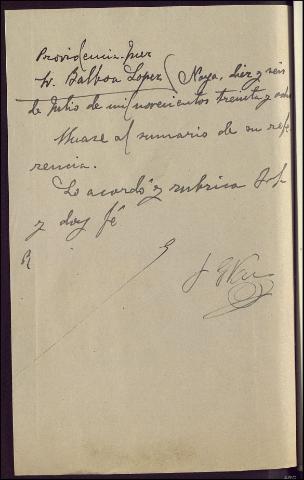 Providencia Juez
Sr. Balboa Lopez / Noya, diez y seis
de Julio de mil novecientos treinta y ocho
Unase al sumario de su refe
rencia.
Lo acordó y rubrica S.S.
y doy fé